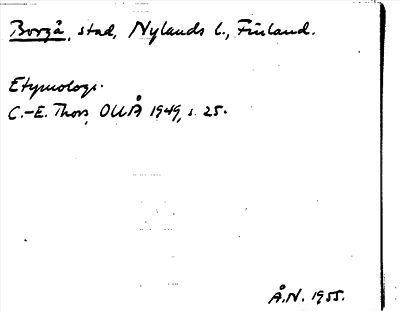 Borgå, stad, Nylands l., Finland.
Etymologi.
C.-E. Thors, OUÅ 1949, s. 25.
Å.N. 1955.